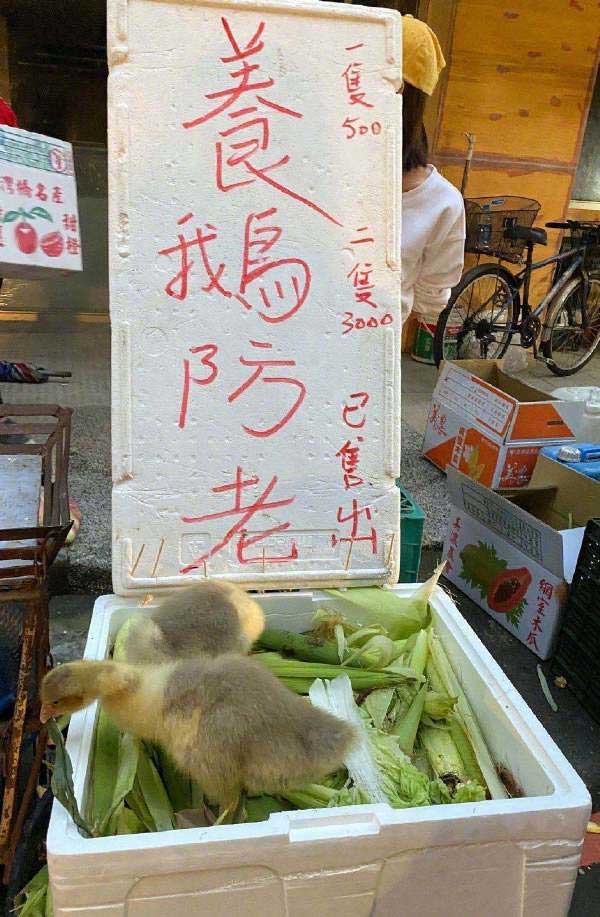 養鵝防老
一隻
500
二隻
3000
已售出
名產
甜橙
網室木瓜